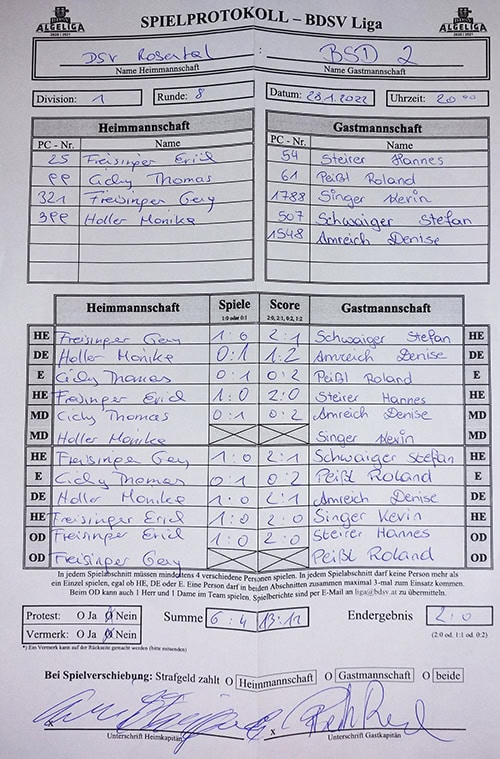 SPIELPROTOKOLL – BDSV Liga
ALGELIGA
ALGELIGA
DSV Rosental : BSD 2
Name Heimmannschaft Name Gastmannschaft
Division: 1 Runde: 8 Datum: 28.1.2022 Uhrzeit: 20 00
Heimmannschaft Gastmannschaft
PC - Nr. Name PC - Nr. Name
25 Freisinger Erich 54 Steirer Hannes
99 Cichy Thomas 61 Peißl Roland
321 Freisinger Gery 1788 Singer Kevin
399 Holler Monika 507 Schwaiger Stefan
1548 Amreich Denise
Heimmannschaft Spiele Score Gastmannschaft
1:0 oder 0:1 2:0, 2:1, 0:2, 1:2
HE Freisinger Gery 1:0 2:1 Schwaiger Stefan HE
DE Holler Monika 0:1 1:2 Amreich Denise DE
E Cichy Thomas 0:1 0:2 Peißl Roland E
HE Freisinger Erich 1:0 2:0 Steirer Hannes HE
MD Cichy Thomas 0:1 0:2 Amreich Denise MD
MD Holler Monika Singer Kevin MD
HE Freisinger Gery 1:0 2:1 Schwaiger Stefan HE
E Cichy Thomas 0:1 0:2 Peißl Roland E
DE Holler Monika 1:0 2:1 Amreich Denise DE
HE Freisinger Erich 1:0 2:0 Singer Kevin HE
OD Freisinger Erich 1:0 2:0 Steirer Hannes OD
OD Freisinger Gery Peißl Roland OD
In jedem Spielabschnitt müssen mindestens 4 verschiedene Personen spielen. In jedem Spielabschnitt darf keine Person mehr als
ein Einzel spielen, egal ob HE, DE oder E. Eine Person darf in beiden Abschnitten zusammen maximal 3-mal zum Einsatz kommen.
Beim OD kann auch 1 Herr und 1 Dame im Team spielen. Spielberichte sind per E-Mail an liga@bdsv.at zu übermitteln.
Protest: O Ja O Nein Summe 6:4 13:12 Endergebnis 2:0
Vermerk: O Ja O Nein (2:0 od. 1:1 od. 0:2)
*) Ein Vermerk kann auf der Rückseite gemacht werden (bitte ankreuzen)
Bei Spielverschiebung: Strafgeld zahlt O Heimmannschaft O Gastmannschaft O beide
x x
Unterschrift Heimkapitän Unterschrift Gastkapitän